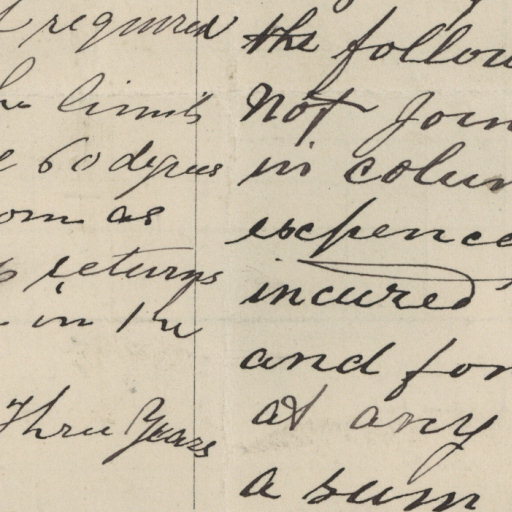 required
limits
60 degrees
as
returns
in the
Three Years
the follow
not Join
in colum
expence
incured
and for
at any
a sum